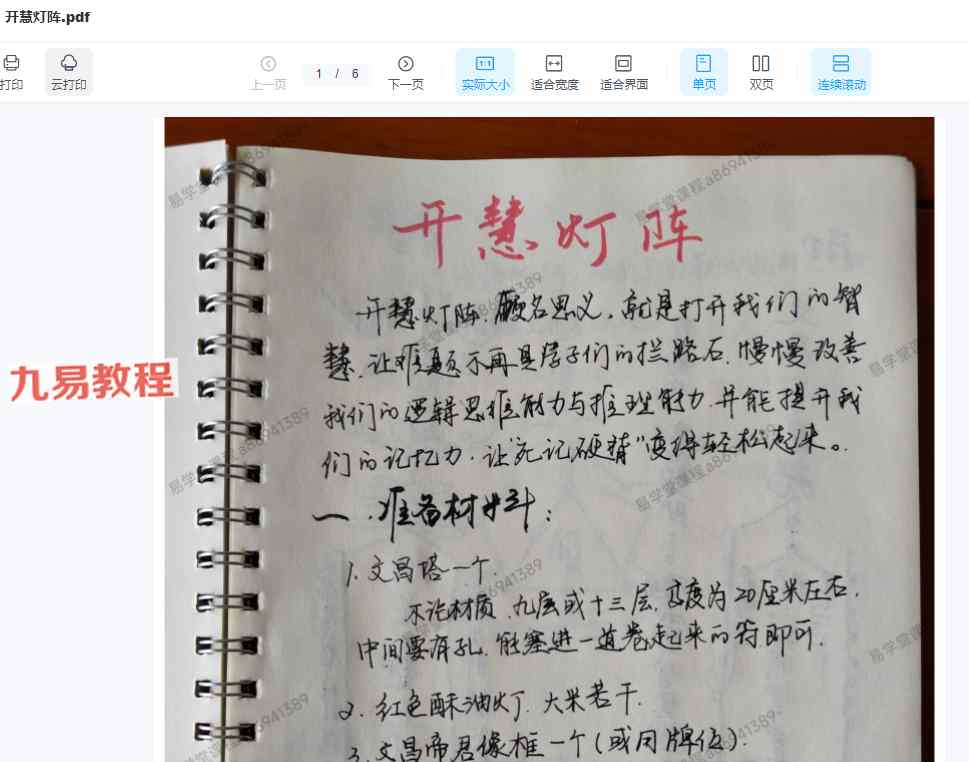 开慧灯阵.pdf
打印
云打印
上一页
1 / 6
下一页
实际大小
适合宽度
适合界面
单页
双页
连续滚动
开慧灯阵
开慧灯阵.顾名思义,就是打开我们的智
慧.让难题不再是学子们的拦路石.慢慢改善
我们的逻辑思维能力与推理能力.并能提升我
们的记忆力.让"死记硬背"变得轻松起来。
一.准备材料:
1.文昌塔一个.
不论材质.九层或十三层,高度为20厘米左右.
中间要有孔.能塞进一道卷起来的符即可.
2.红色酥油灯.大米若干.
3.文昌帝君像框一个(或用牌位).
九易教程
易学堂课程a86941389